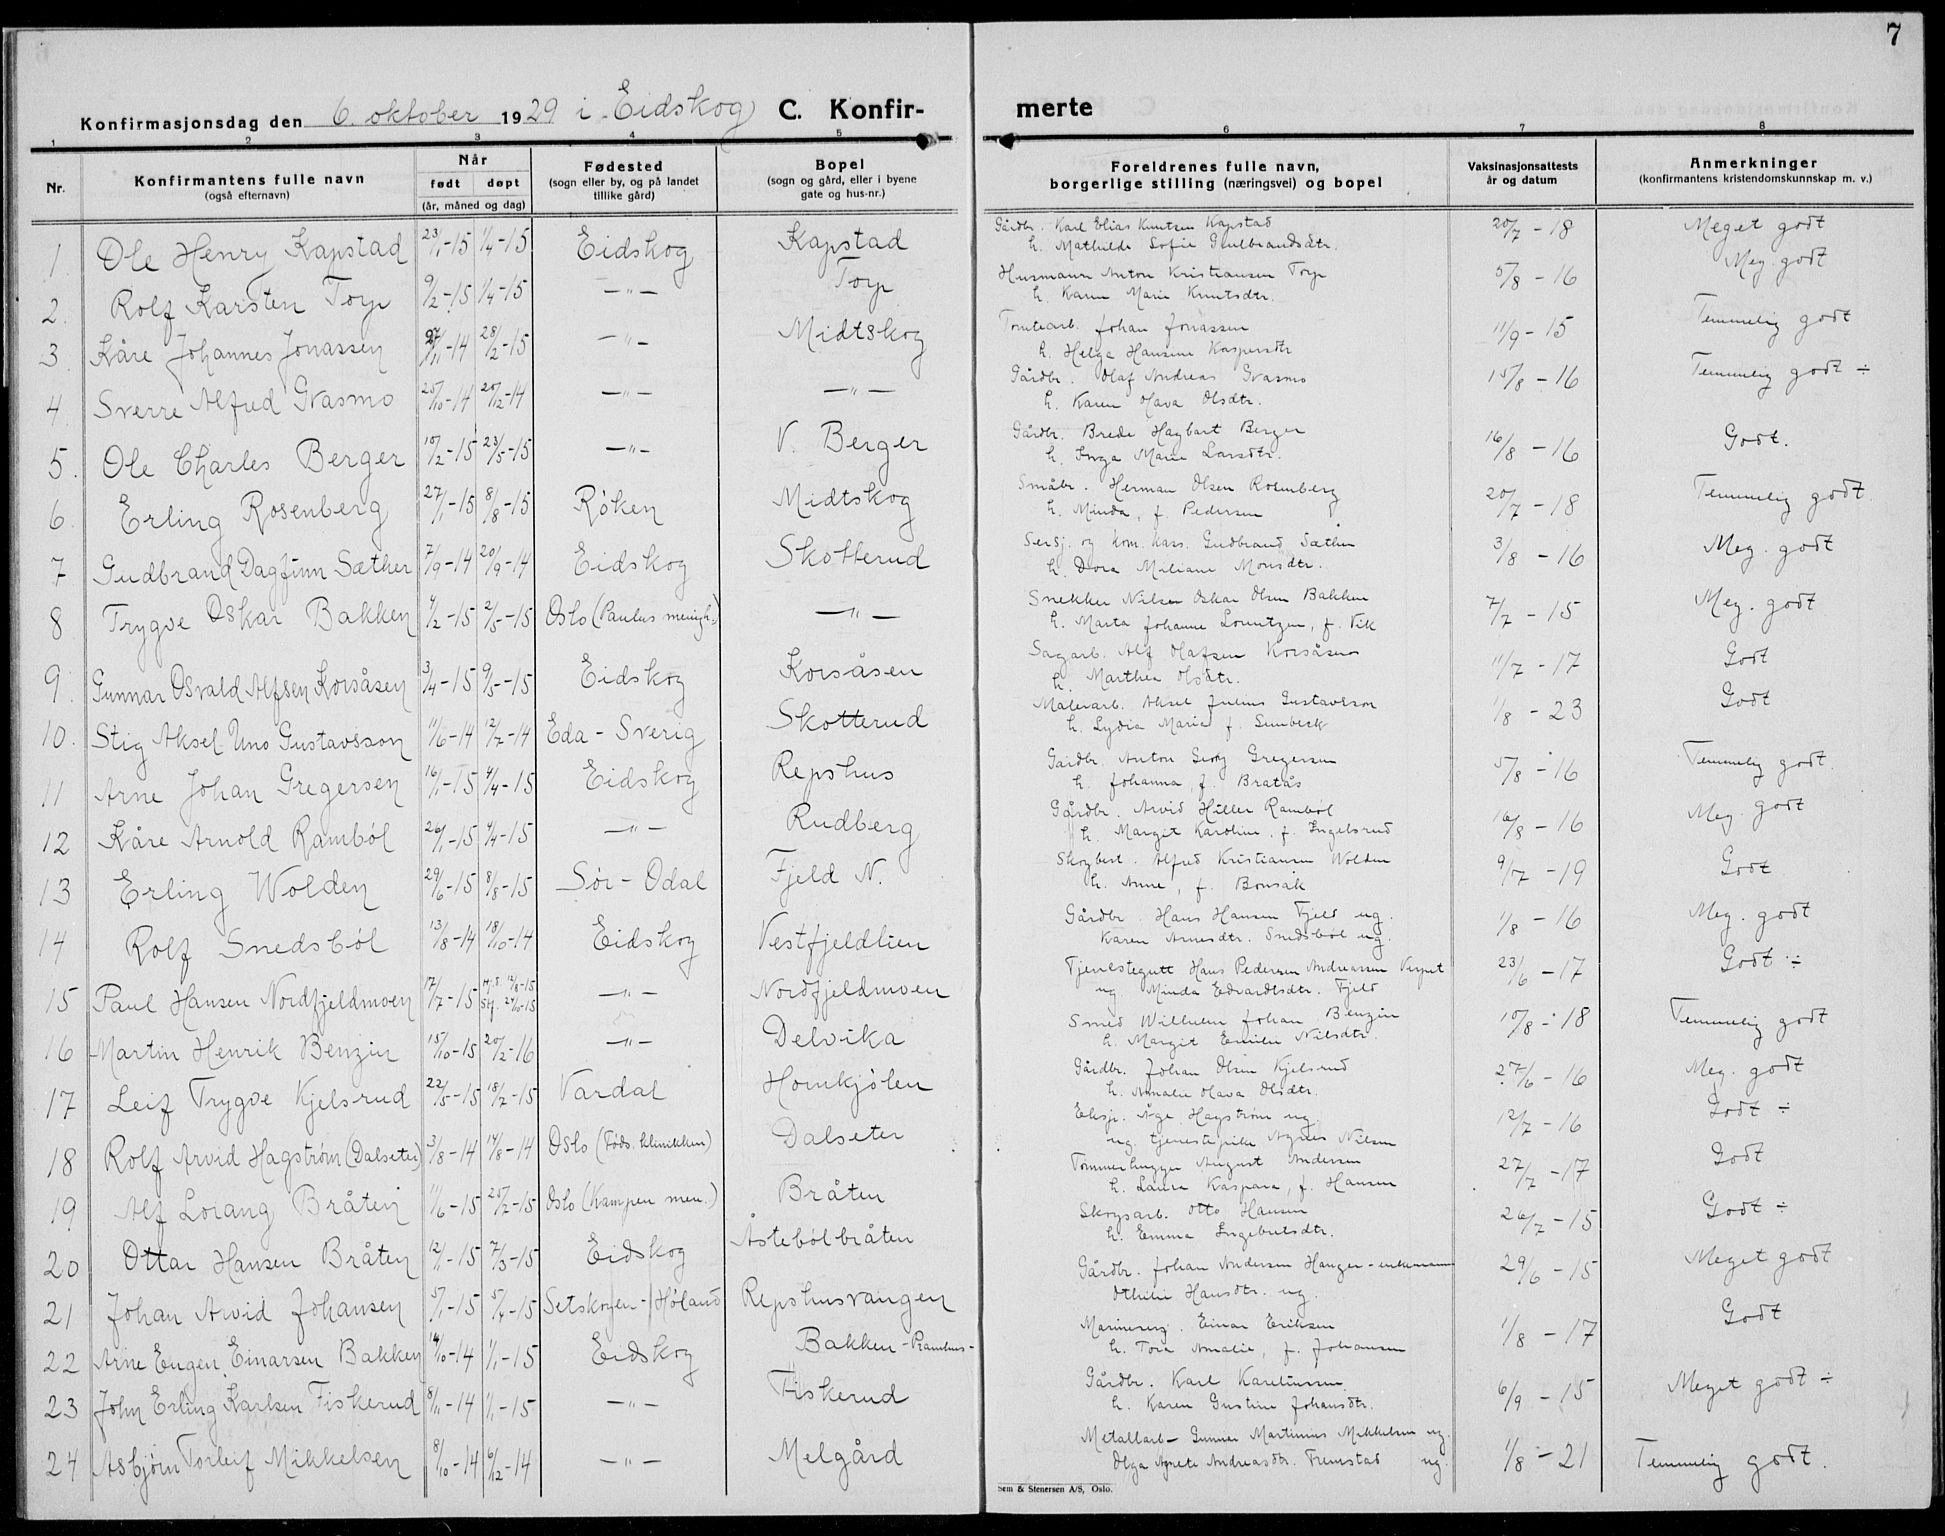 7
Konfirmasjonsdag den 6. oktober 1929 i Eidskog C. Konfir- merte
1 2 3 4 5 6 7 8
Nr.
Konfirmantens fulle navn
(også efternavn)
Når
født døpt
(år, måned og dag)
Fødested
(sogn eller by, og på landet
tillike gård)
Bopel
(sogn og gård, eller i byene
gate og hus-nr.)
Foreldrenes fulle navn,
borgerlige stilling (næringsvei) og bopel
Vaksinasjonsattests
år og datum
Anmerkninger
(konfirmantens kristendomskunnskap m. v.)
1 Ole Henry Kapstad 23/1-15 1/4-15 Eidskog Kapstad Gårdbr. Karl Elias Knutsen Kapstad 20/7-18 Meget godt
h. Mathilde Sofie Gulbrandsdtr.
2. Rolf Karsten Torp 9/2-15 1/4-15 —"— Torp Husmann Anton Kristiansen Torp 5/8-16 Meg. godt
h. Karen Marie Knutsdtr.
3. Kåre Johannes Jonassen 27/11-14 28/2-15 —"— Midtskog Tomtearb. Johan Jonassen 11/9-15 Temmelig godt
h. Helga Hansine Kaspersdtr
4 Sverre Alfred Gvasmo 25/10-14 20/12-14 —"— —"— Gårdbr. Olaf Andreas Gvasmo 15/8-16 Temmelig godt ÷
h. Karen Olava Olsdtr.
5. Ole Charles Berger 10/2-15 23/5-15 —"— V. Berger Gårdbr. Brede Hagbart Berger 16/8-16 Godt.
h. Inga Marie Larsdtr.
6. Erling Rosenberg 27/1-15 8/8-15 Røken Midtskog Småbr. Herman Olsen Rosenberg 20/7-18 Temmelig godt.
h. Minda, f. Pedersen
7 Gudbrand Dagfinn Sæther 7/9-14 20/9-14 Eidskog Skotterud Sersj. og kom. kass. Gudbrand Sæther 3/8-16 Meg. godt
h. Dora Miliane Monsdtr.
8 Trygve Oskar Bakken 4/2-15 2/5-15 Oslo (Paulus menigh.) —"— Snekker Nilsen Oskar Olsen Bakken 7/7-15 Meg. godt
h. Marta Johanne Lorentzen, f. Vik
9. Gunnar Osvald Alfsen Korsåsen 3/4-15 9/5-15 Eidskog Korsåsen Sagarb. Alf Olafsen Korsåsen 11/7-17 Godt
h. Marthea Olsdtr.
10. Stig Aksel Uno Gustavsson 11/6-14 12/7-14 Eda - Sverig Skotterud Malerarb. Aksel Julius Gustavsson 1/8-23 Godt
h. Lydia Maria f.
11 Arne Johan Gregersen 16/1-15 4/4-15 Eidskog Repshus Gårdbr. Anton Georg Gregersen 5/8-16 Temmelig godt.
h. Johanna f. Bratås
12 Kåre Arnold Rambøl 26/1-15 4/4-15 —"— Rudberg Gårdbr. Arvid Hiller Rambøl 16/8-16 Meg. godt
h. Margit Karoline, f. Ingelsrud
13 Erling Wolden 29/6-15 8/8-15 Sør-Odal Fjeld N. Skogbest. Alfred Kristiansen Wolden 9/7-19 Godt
h. Anne, f. Bonsak
14 Rolf Snedsbøl 13/8-14 18/10-14 Eidskog Vestfjeldlien Gårdbr. Hans Hansen Fjeld ug. 1/8-16 Meg. godt
Karen Arnesdtr. Snedsbøl ug.
15 Paul Hansen Nordfjeldmoen 17/7-15 Hj.d. 12/8-15 Stf. 24/10-15 —"— Nordfjeldmoen Tjenestegutt Hans Pedersen Andreassen 23/6-17 Godt ÷
ug. Minda Edvardtsdtr. Fjeld
16 Martin Henrik Benzin 15/10-15 20/2-16 —"— Delvika Smed Wilhelm Johan Benzin 10/8-18 Temmelig godt
h. Margit Emilie Nilsdtr.
17 Leif Trygve Kjelsrud 22/5-15 18/7-15 Vardal Hornkjølen Gårdbr. Johan Olsen Kjelsrud 27/6-16 Meg. godt
h. Amalie Olava Olsdtr.
18 Rolf Arvid Hagstrøm (Dalseter) 3/8-14 14/8-14 Oslo (Føds. klinikken) Dalseter Eksp. Åge Hagstrøm ug. 12/7-16 Godt ÷
ug. tjenestepike Agnes Nilsen
19 Alf Lorang Bråten 11/6-15 25/7-15 Oslo (Kampen men.) Bråten Tømmerhugger August Andersen 27/7-17 Godt
h. Laura Kaspara, f. Hansen
20 Ottar Hansen Bråten 12/1-15 7/3-15 Eidskog Åstebølbråten Skogsarb. Otto Hansen 26/7-15 Godt ÷
h. Emma Ingebretsdtr.
21 Johan Arvid Johansen 5/1-15 5/4-15 Setskogen - Høland Repshusvangen Gårdbr. Johan Andersen Hanger - enkemann 29/6-15 Meget godt
Othilie Hansdtr. ug.
22 Arne Eugen Einarsen Bakken 14/10-14 1/1-15 Eidskog Bakken - Ramhus- Einar Eriksen 1/8-17 Godt
h. Tora Amalie, f. Johansen
23 John Erling Karlsen Fiskerud 8/11-14 1/1-15 —"— Fiskerud Gårdbr. Karl Kareliussen 6/9-15 Meget godt ÷
h. Karen Gustine Johansdtr.
24 Asbjørn Torleif Mikkelsen 8/10-14 6/12-14 —"— Melgård Metallarb - Gunnar Martinius Mikkelsen ug. 1/8-21 Temmelig godt.
Olga Agnete Andreasdtr. Fremstad ug.
Sem & Stenersen A/S, Oslo.